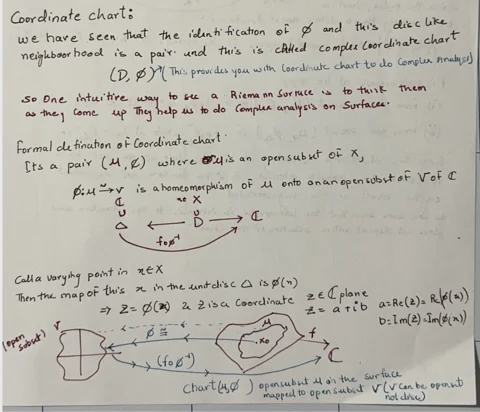 Coordinate chart:
we have seen that the identification of ϕ and this disc like
neighbourhood is a pair and this is called complex coordinate chart
(D, ϕ) (This provides you with coordinate chart to do Complex Analysis)
So One intuitive way to see a Riemann Surface is to think them
as they come up They help us to do Complex analysis on Surfaces.
Formal defination of Coordinate chart.
Its a pair (μ, ϕ) where μ is an open subset of X,
ϕ: μ ≅→ v is a homeomorphism of μ onto an an open subst of V of ℂ
ℂ X
∪ ∪
△ ← D → ℂ
foϕ⁻¹
Call a varying point in x∈X
Then the map of this x in the unit disc △ is ϕ(x)
⇒ Z = ϕ(x) & Z is a Coordinate
z∈ℂ plane
Z = a+ib
a=Re(z)=Re(ϕ(x))
b=Im(z)=Im(ϕ(x))
(open subset) V
ϕ ≅
μ
x₀
f
(foϕ⁻¹)
ℂ
Chart (μ,ϕ) open subset μ on the surface
mapped to open subset V (V can be open set
not disc)